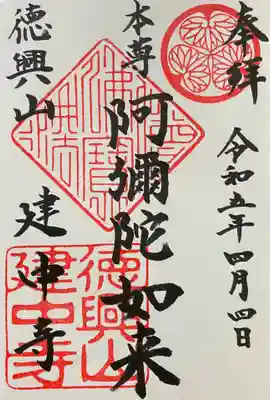 奉拝
令和五年四月四日
本尊
阿彌陀如来
徳興山
建中寺
佛法僧寶
徳興山
建中寺